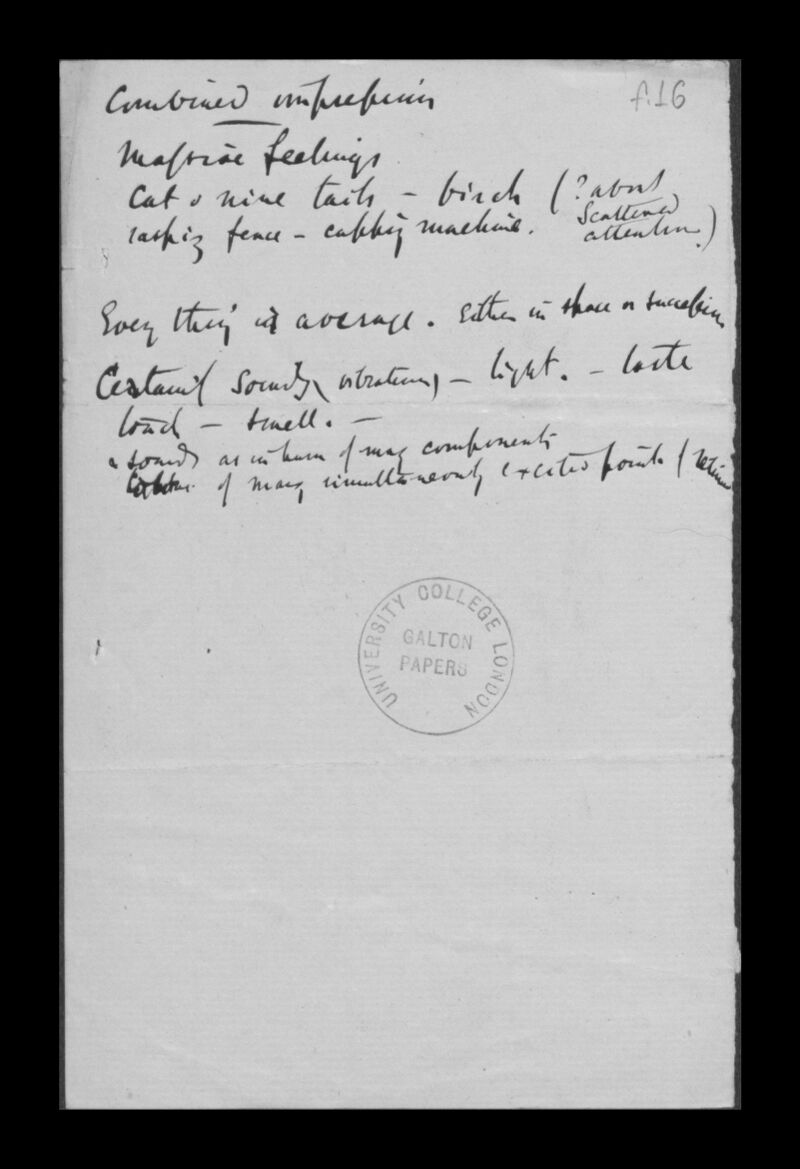 Combined impression
f.16
Massive feelings
Cat o nine tails – birch (? about
scattered
attention.)
rasping fence – cupping machine.
Every thing is average. Either in space or succession
Certainly sounds (vibrations) – light. – taste
touch – smell. –
a sound as in hum of many components
of many simultaneously excited points (retina
UNIVERSITY COLLEGE LONDON
GALTON
PAPERS